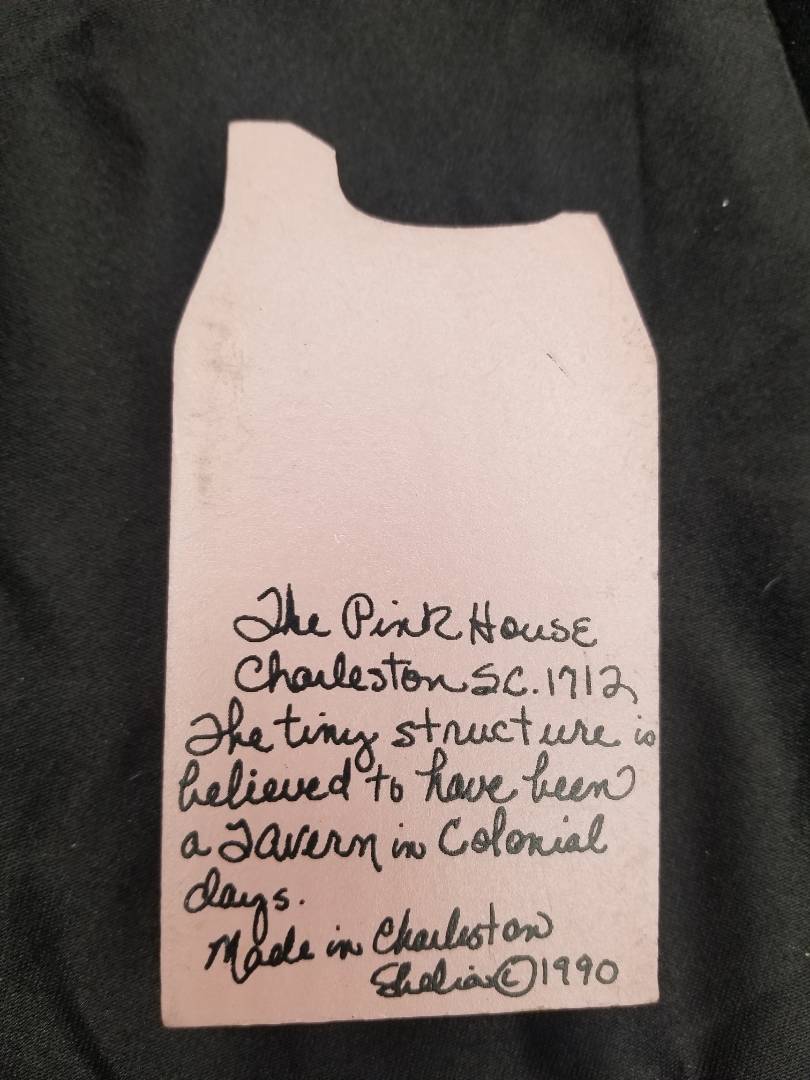 The Pink House
Charleston SC. 1712
The tiny structure is
believed to have been
a Tavern in Colonial
days.
Made in Charleston
Shelia © 1990